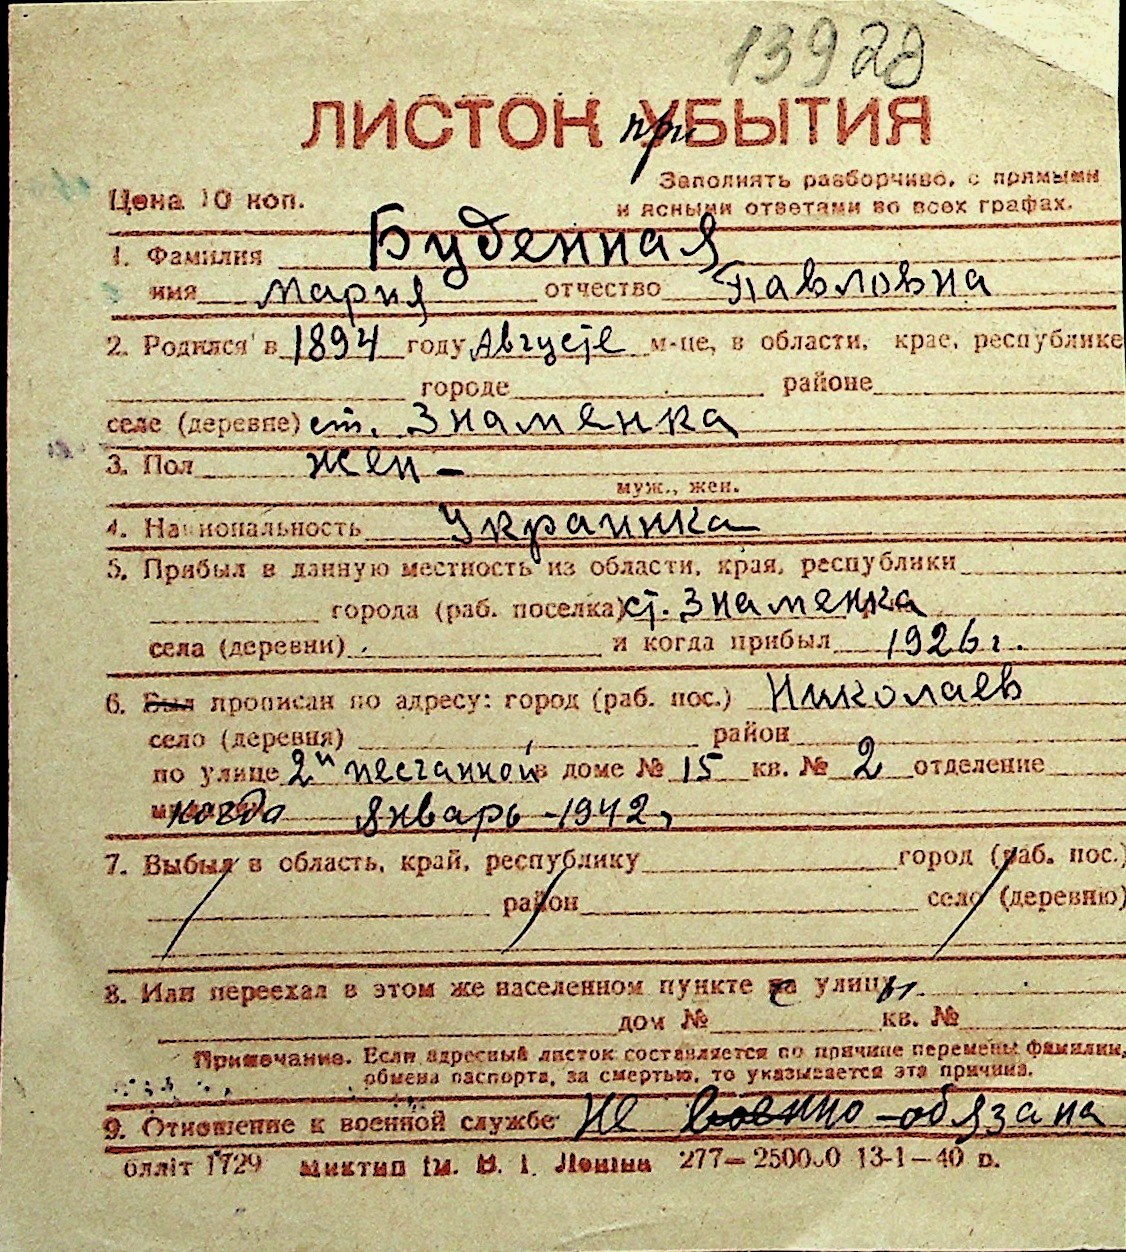 13928
ЛИСТОК при УБЫТИЯ
Цена 10 коп.
Заполнять разборчиво, с прямыми
и ясными ответами во всех графах.
1. Фамилия Буденная
имя Мария отчество Павловна
2. Родился в 1894 году Августе м-це, в области, крае, республике
городе районе
селе (деревне) ст. Знаменка
3. Пол жен –
муж., жен.
4. Национальность Украинка
5. Прибыл в данную местность из области, края, республики
города (раб. поселка) ст. Знаменка
села (деревни) и когда прибыл 1926 г.
6. Был прописан по адресу: город (раб. пос.) Николаев
село (деревня) район
по улице 2й песчанной в доме № 15 кв. № 2 отделение
когда январь – 1942,
7. Выбыл в область, край, республику город (раб. пос.)
район село (деревню)
8. Или переехал в этом же населенном пункте с улицы
дом № кв. №
Примечание. Если адресный листок составляется по причине перемены фамилии,
обмена паспорта, за смертью, то указывается эта причина.
9. Отношение к военной службе не военно-обязана
блліт 1729 Миктип ім. В. І. Леніна 277—250000 13-1—40 р.